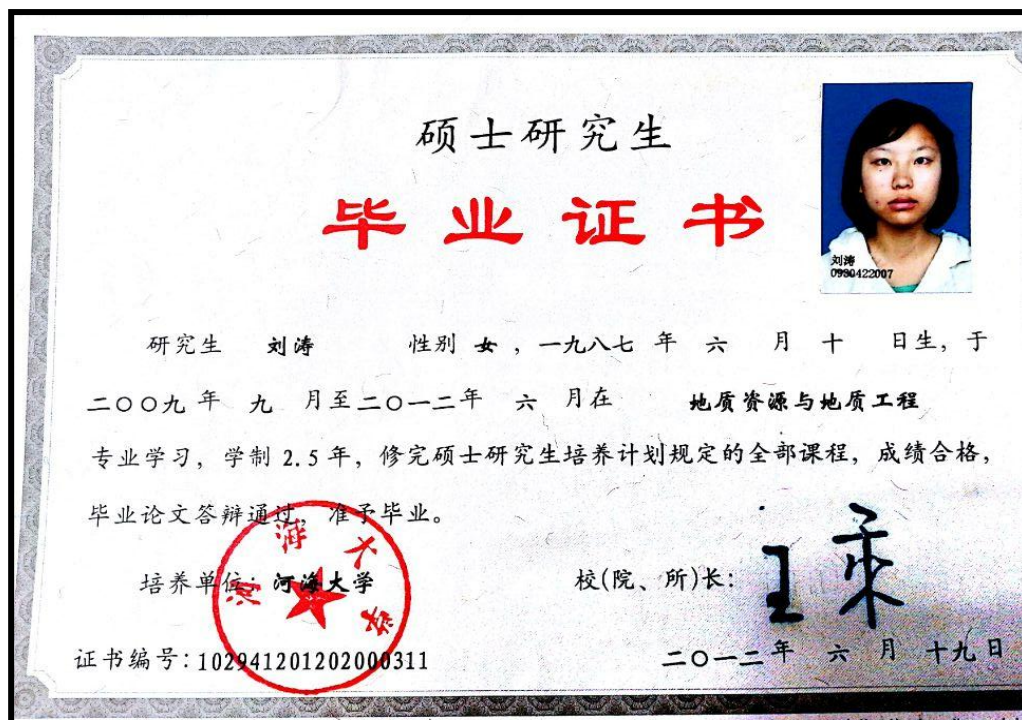 硕士研究生
毕业证书
刘涛
0930422007
研究生 刘涛 性别 女，一九八七 年 六 月 十 日生，于
二〇〇九 年 九 月至二〇一二年 六 月在 地质资源与地质工程
专业学习，学制 2.5 年，修完硕士研究生培养计划规定的全部课程，成绩合格，
毕业论文答辩通过，准予毕业。
河海大学
培养单位：河海大学 校(院、所)长：
证书编号：102941201202000311 二〇一二年 六 月 十九日